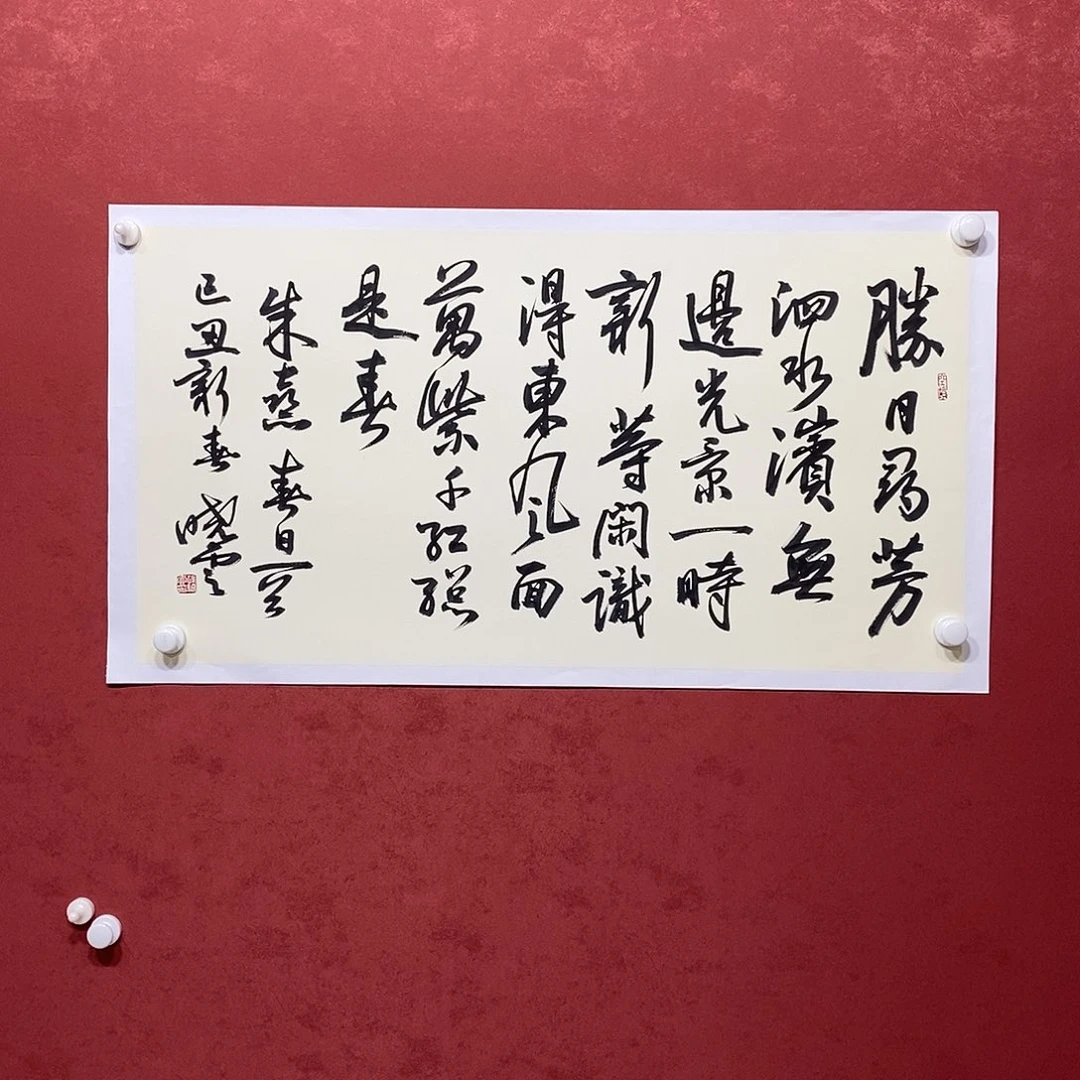 勝日尋芳
泗水濱無
邊光景一時
新等閑識
得東風面
萬紫千紅總
是春
朱熹春日
己丑新春晓雲